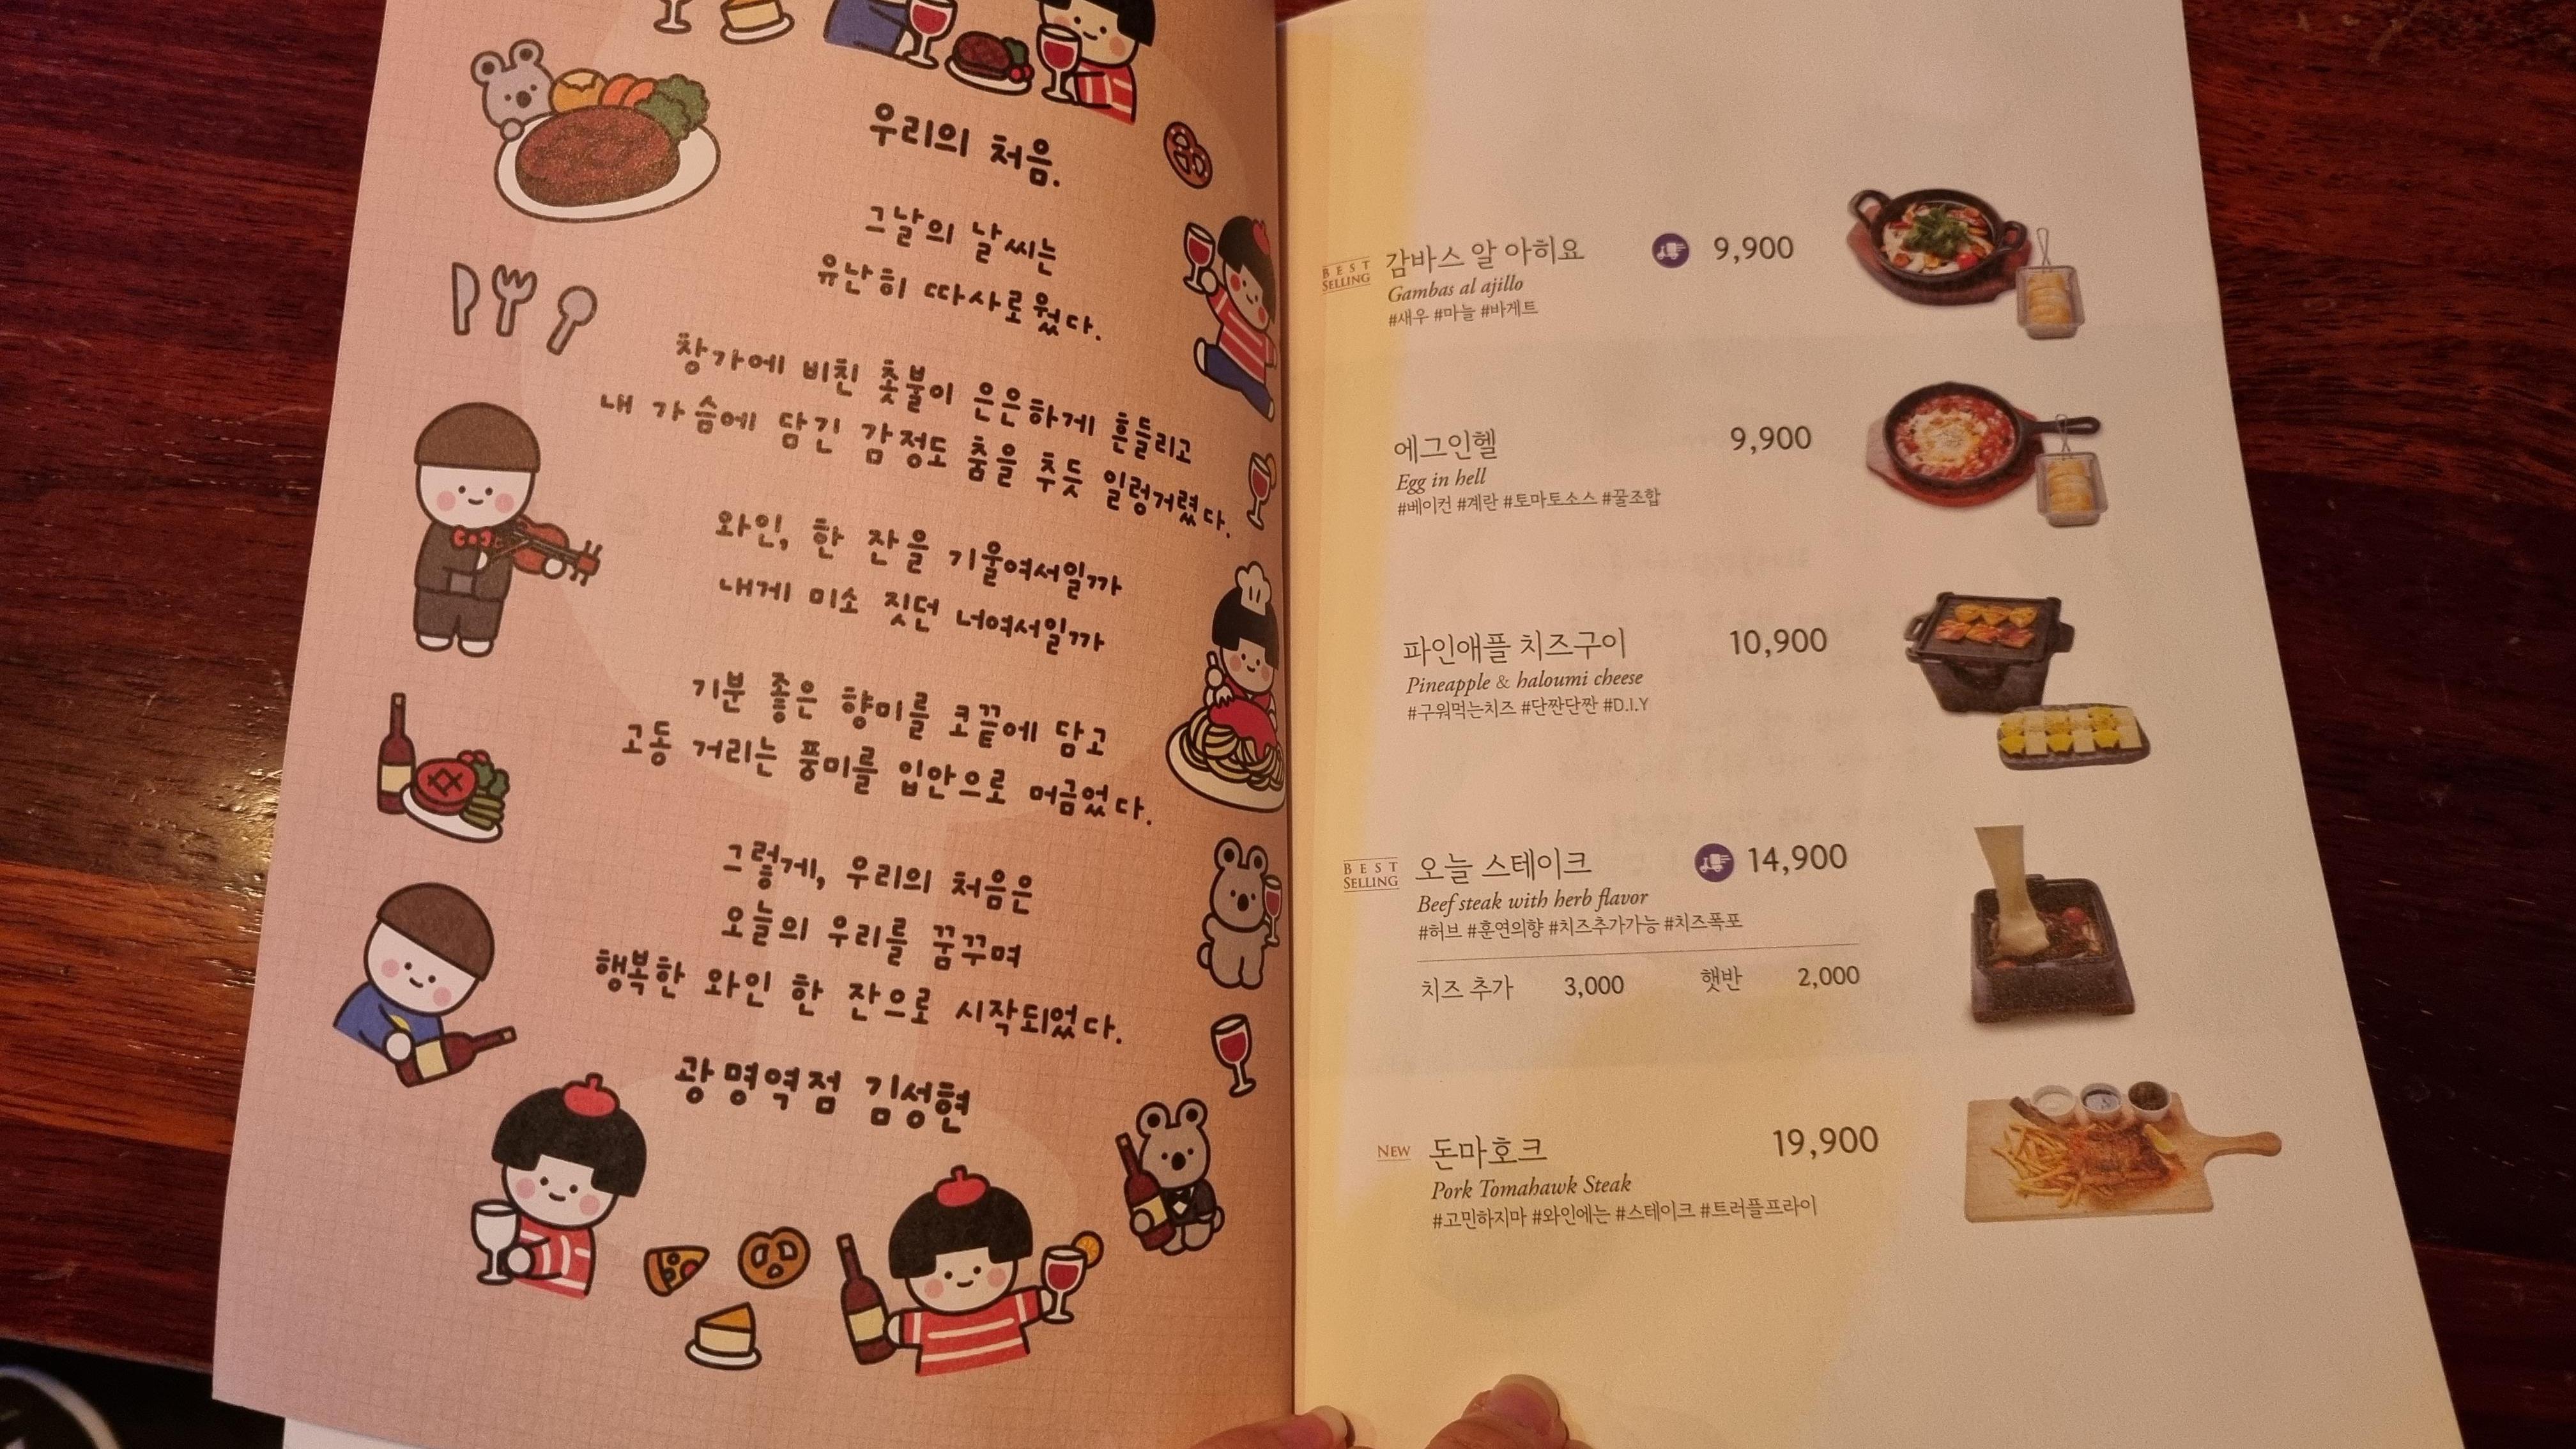 우리의 처음.
그날의 날씨는
유난히 따사로웠다.
창가에 비친 촛불이 은은하게 흔들리고
내 가슴에 담긴 감정도 춤을 추듯 일렁거렸다.
와인, 한 잔을 기울여서일까
내게 미소 짓던 너여서일까
기분 좋은 향미를 코끝에 담고
고동 거리는 풍미를 입안으로 머금었다.
그렇게, 우리의 처음은
오늘의 우리를 꿈꾸며
행복한 와인 한 잔으로 시작되었다.
광명역점 김성현
BEST
SELLING
감바스 알 아히요 9,900
Gambas al ajillo
#새우 #마늘 #바게트
에그인헬 9,900
Egg in hell
#베이컨 #계란 #토마토소스 #꿀조합
파인애플 치즈구이 10,900
Pineapple & haloumi cheese
#구워먹는치즈 #단짠단짠 #D.I.Y
BEST
SELLING
오늘 스테이크 14,900
Beef steak with herb flavor
#허브 #훈연의향 #치즈추가가능 #치즈폭포
치즈 추가 3,000 햇반 2,000
NEW 돈마호크 19,900
Pork Tomahawk Steak
#고민하지마 #와인에는 #스테이크 #트러플프라이